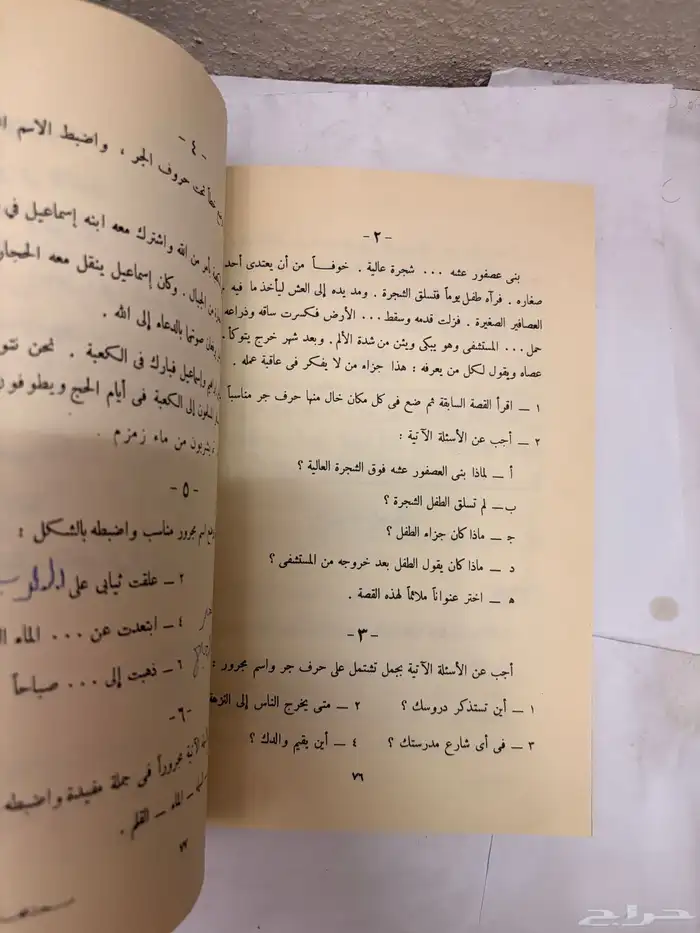 - ٢ -
بنى عصفور عشه ... شجرة عالية . خوفــاً من أن يعتدى أحد
صغاره . فرآه طفل يوماً فتسلق الشجرة . ومد يده إلى العش ليأخذ ما فيه
العصافير الصغيرة . فزلت قدمه وسقط ... الأرض فكسرت ساقه وذراعه
حمل ... المستشفى وهو يبكى ويئن من شدة الألم . وبعد شهر خرج يتوكأ .
عصاه ويقول لكل من يعرفه : هذا جزاء من لا يفكر فى عاقبة عمله .
١ ــ اقرأ القصة السابقة ثم ضع فى كل مكان خال منها حرف جر مناسباً
٢ ــ أجب عن الأسئلة الآتية :
أ ــ لماذا بنى العصفور عشه فوق الشجرة العالية ؟
ب ــ لم تسلق الطفل الشجرة ؟
ج ــ ماذا كان جزاء الطفل ؟
د ــ ماذا كان يقول الطفل بعد خروجه من المستشفى ؟
ه ــ اختر عنواناً ملائماً لهذه القصة .
- ٣ -
أجب عن الأسئلة الآتية بجمل تشتمل على حرف جر واسم مجرور :
١ ــ أين تستذكر دروسك ؟ ٢ ــ متى يخرج الناس إلى النزهة
٣ ــ فى أى شارع مدرستك ؟ ٤ ــ أين يقيم والدك ؟
٧٦
- ٤ -
خطاً تحت حروف الجر ، واضبط الاسم
أمر من الله واشترك معه ابنه إسماعيل في
من الجبال . وكان إسماعيل ينقل معه الحجار
صوتهما بالدعاء إلى الله .
وإسماعيل فبارك فى الكعبة . نحن نتو
إلى الكعبة فى أيام الحج ويطوفون
يشربون من ماء زمزم .
- ٥ -
اسم مجرور مناسب واضبطه بالشكل :
٢ ــ علقت ثيابى على
٤ ــ ابتعدت عن ... الماء
٦ ــ ذهبت إلى ... صباحاً
- ٦ -
الآتية مجروراً فى جملة مفيدة واضبطه
ــ الماء ــ القلم .
٧٧
حراج